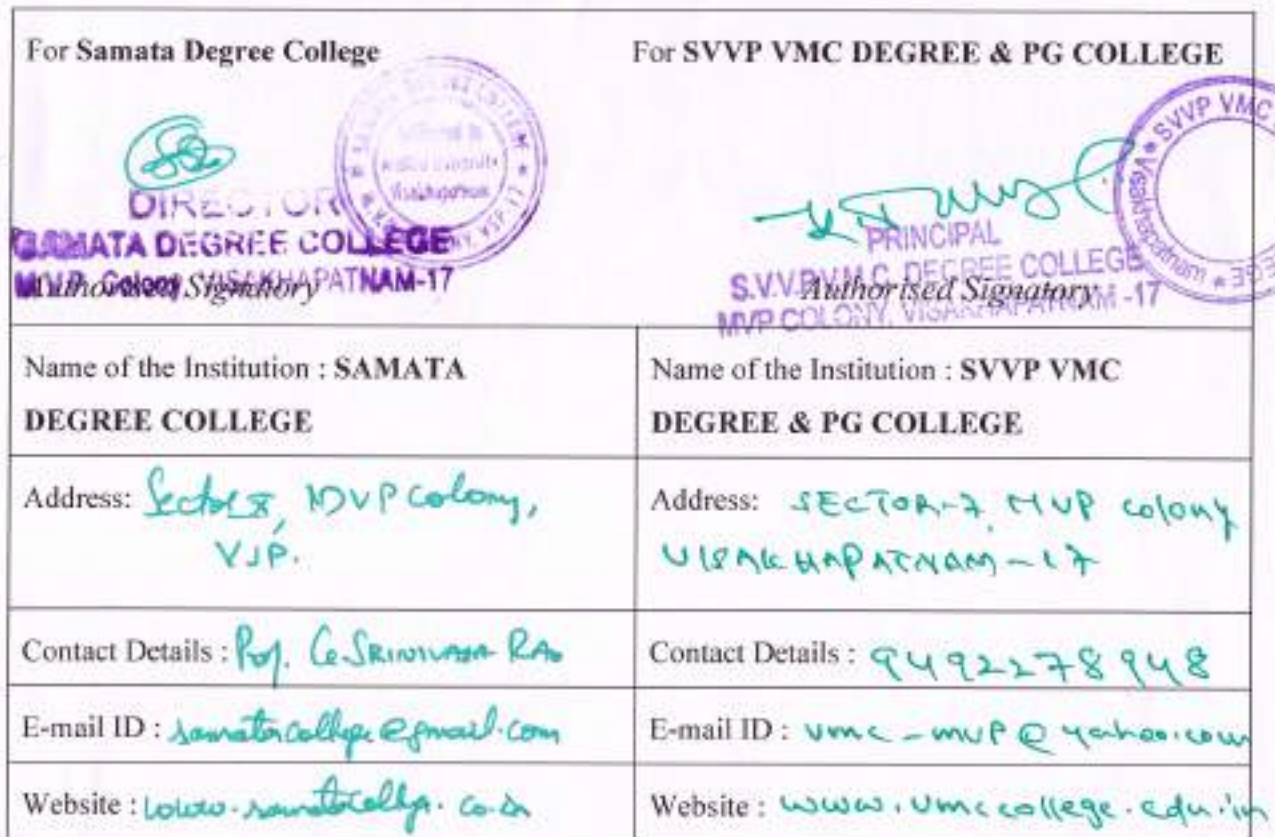 For Samata Degree College
For SVVP VMC DEGREE & PG COLLEGE
DIRECTOR
SAMATA DEGREE COLLEGE
M.V.P. Colony, VISAKHAPATNAM-17
Authorised Signatory
SVVP VMC
Visakhapatnam
PRINCIPAL
S.V.V.P.V.M.C. DEGREE COLLEGE
MVP COLONY, VISAKHAPATNAM -17
Authorised Signatory
Name of the Institution : SAMATA
DEGREE COLLEGE
Name of the Institution : SVVP VMC
DEGREE & PG COLLEGE
Address: MVP Colony,
VSP.
Address: SECTOR-7, MVP colony
VISAKHAPATNAM-17
Contact Details : Prof. G. SRINIVASA RAO
Contact Details : 9492278948
E-mail ID : samatacollege@gmail.com
E-mail ID : vmc-mvp@yahoo.com
Website : www.samatacollege.co.in
Website : www.vmccollege.edu.in